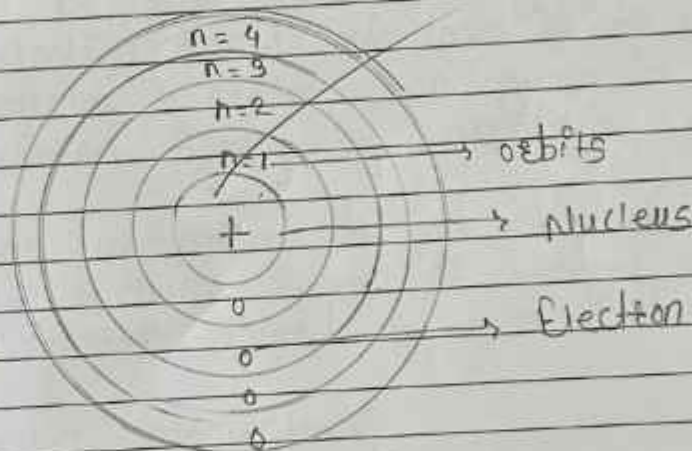 n = 4
n = 3
n = 2
n = 1
orbits
+
Nucleus
Electron
0
0
0
0